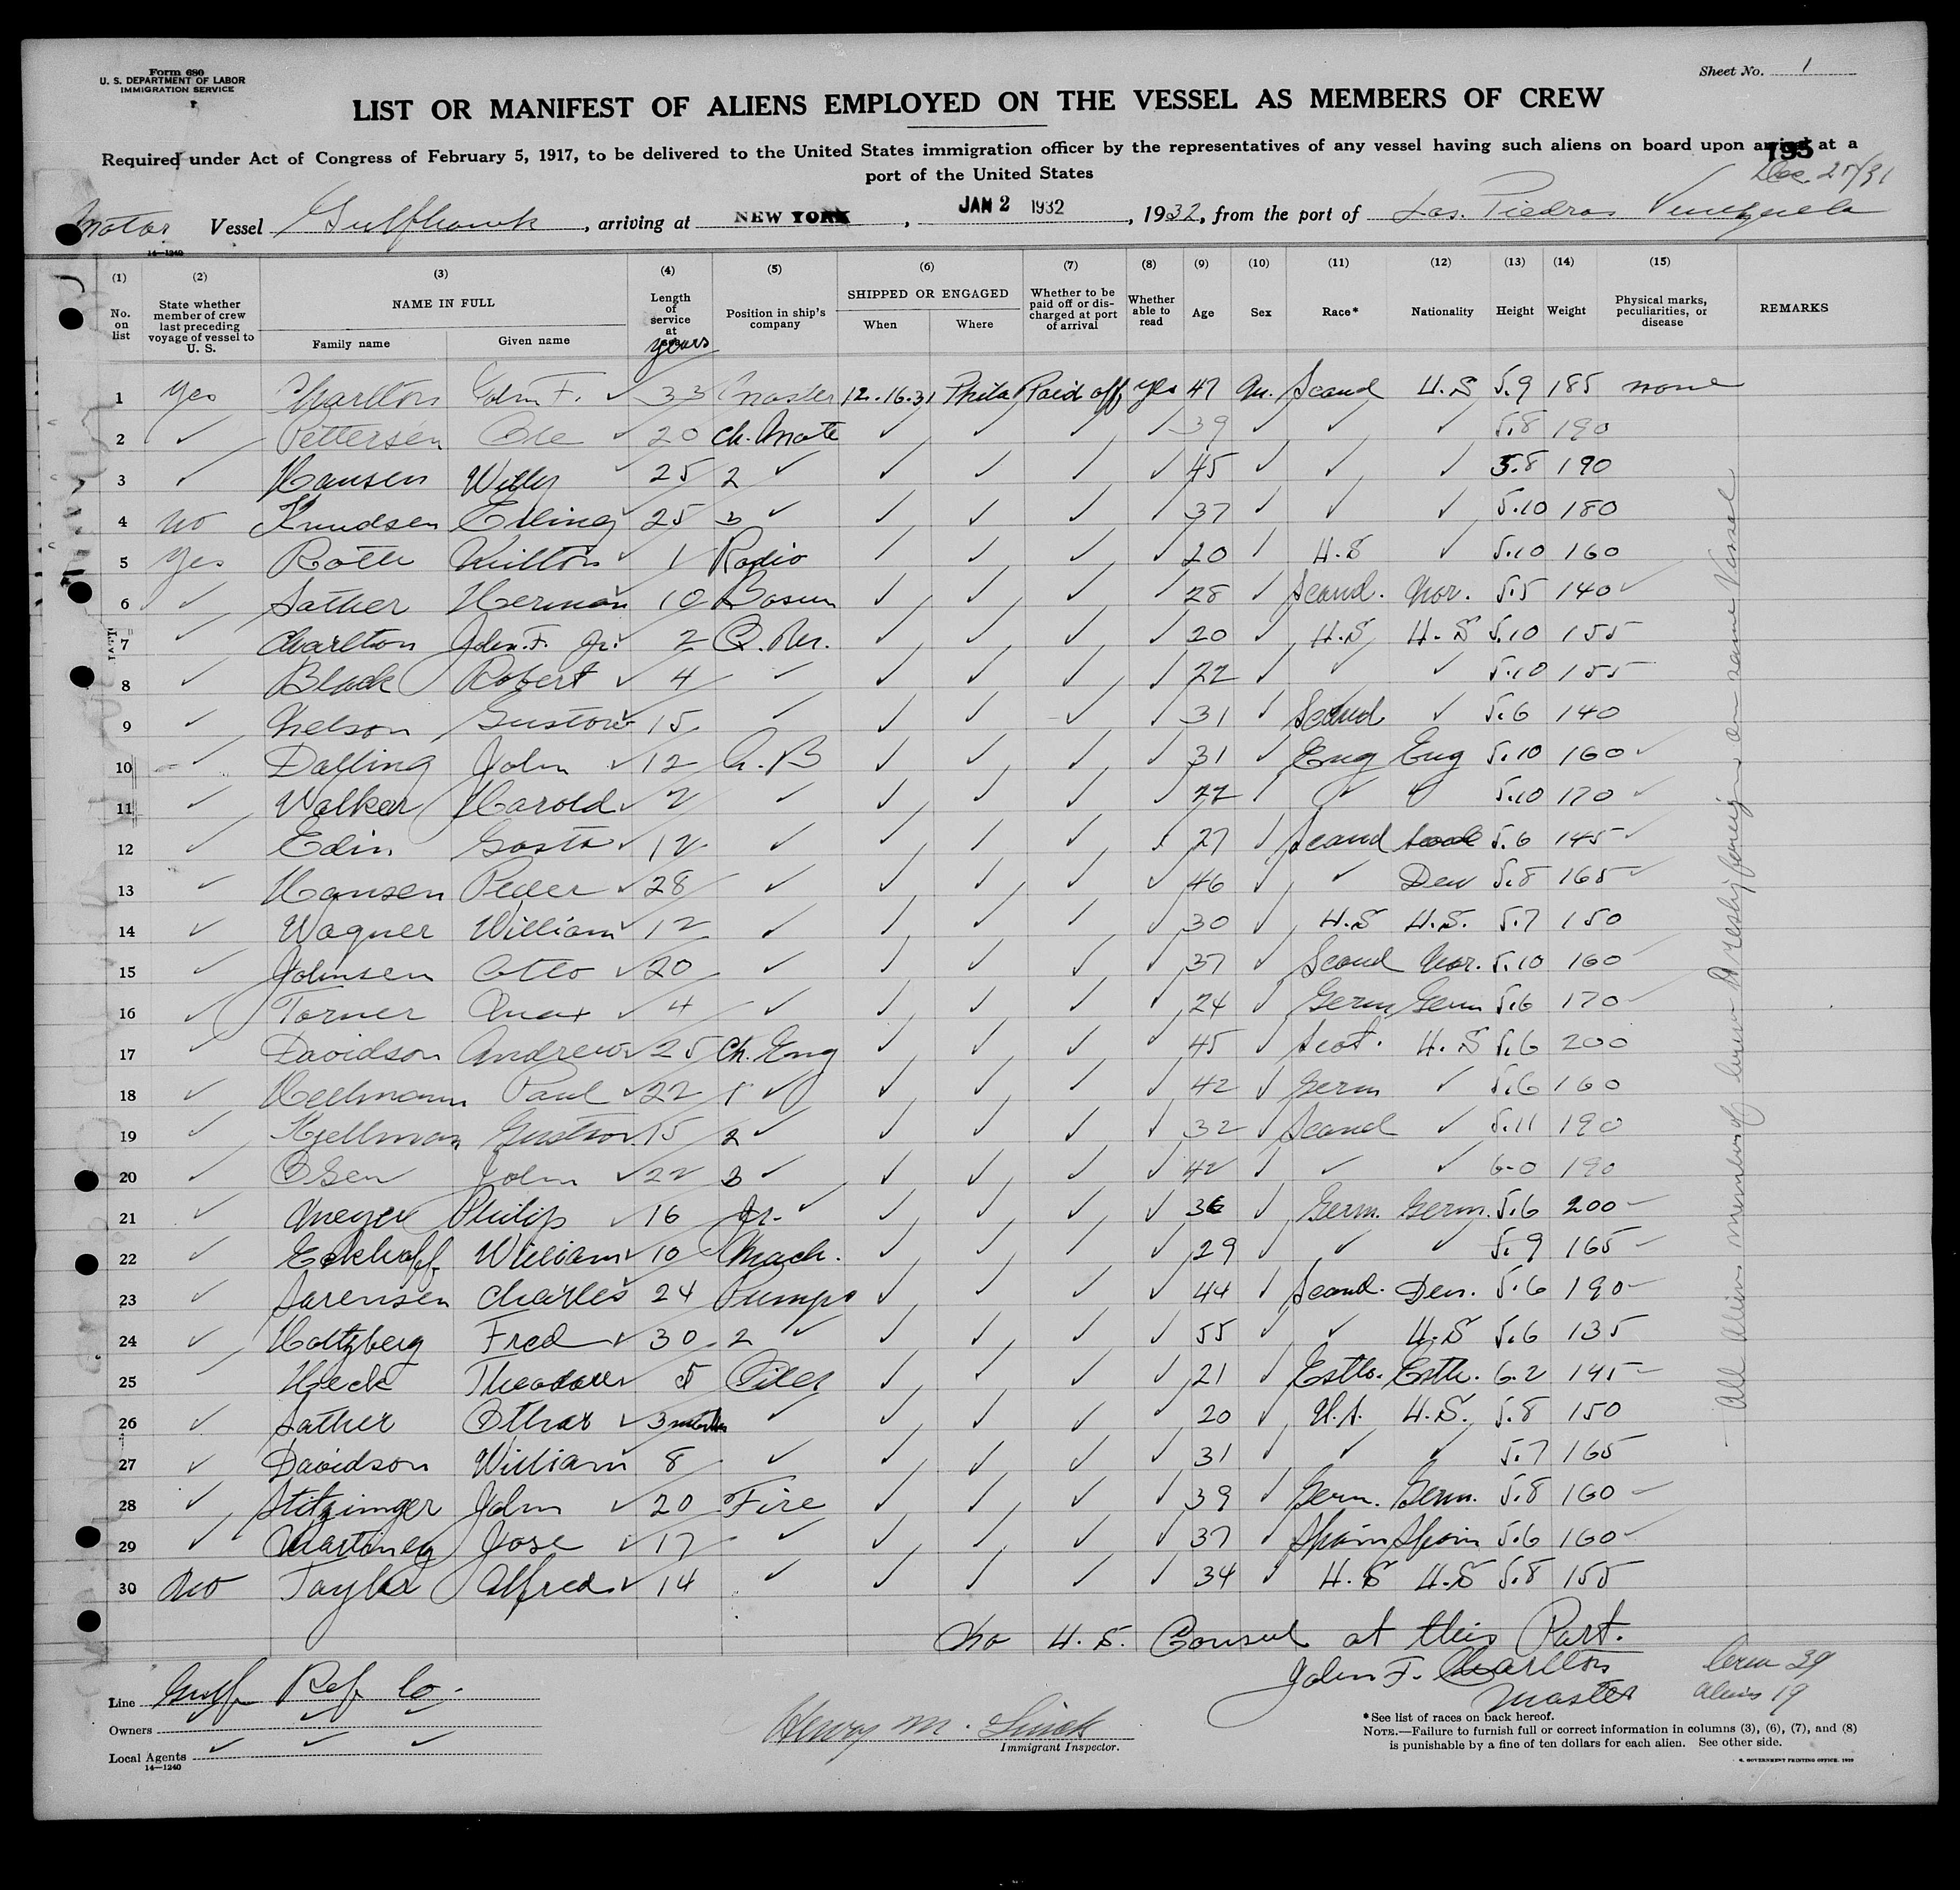 Form 680
U. S. DEPARTMENT OF LABOR
IMMIGRATION SERVICE
Sheet No. 1
LIST OR MANIFEST OF ALIENS EMPLOYED ON THE VESSEL AS MEMBERS OF CREW
Required under Act of Congress of February 5, 1917, to be delivered to the United States immigration officer by the representatives of any vessel having such aliens on board upon arrival at a
port of the United States
195
Dec. 25/31
Motor Vessel Gulfhawk, arriving at NEW YORK, JAN 2 1932, 1932, from the port of Las Piedras Venezuela
14—1240
(1) (2) (3) (4) (5) (6) (7) (8) (9) (10) (11) (12) (13) (14) (15)
No. on list
State whether member of crew last preceding voyage of vessel to U. S.
NAME IN FULL
Family name Given name
Length of service at years
Position in ship's company
SHIPPED OR ENGAGED
When Where
Whether to be paid off or discharged at port of arrival
Whether able to read
Age Sex Race* Nationality Height Weight
Physical marks, peculiarities, or disease
REMARKS
1 Yes Charlton John F. ✓ 33 Master 12.16.31 Phila Paid off yes 47 M. Scand U.S 5.9 185 none
2 ✓ Pettersen Ole ✓ 20 Ch. Mate ✓ ✓ ✓ ✓ 39 ✓ ✓ ✓ 5.8 190
3 ✓ Hansen Willy ✓ 25 2 ✓ ✓ ✓ ✓ ✓ 45 ✓ ✓ ✓ 5.8 190
4 no Knudsen Erling ✓ 25 3 ✓ ✓ ✓ ✓ ✓ 37 ✓ ✓ ✓ 5.10 180
5 Yes Roth Milton ✓ 1 Radio ✓ ✓ ✓ ✓ 20 ✓ U.S ✓ 5.10 160
6 ✓ Sather Herman 10 Bosun ✓ ✓ ✓ ✓ 28 ✓ Scand. Nor. 5.5 140 ✓
7 ✓ Charlton John F. Jr. 2 Q. Mr. ✓ ✓ ✓ ✓ 20 ✓ U.S U.S 5.10 155
8 ✓ Black Robert ✓ 4 ✓ ✓ ✓ ✓ ✓ 22 ✓ ✓ ✓ 5.10 155
9 ✓ Nelson Gustov ✓ 15 ✓ ✓ ✓ ✓ ✓ 31 ✓ Scand ✓ 5.6 140
10 ✓ Dalling John ✓ 12 A.B ✓ ✓ ✓ ✓ 31 ✓ Eng Eng 5.10 160 ✓
11 ✓ Walker Harold ✓ 2 ✓ ✓ ✓ ✓ ✓ 22 ✓ ✓ ✓ 5.10 170 ✓
12 ✓ Edin Gosta ✓ 12 ✓ ✓ ✓ ✓ ✓ 27 ✓ Scand 5.6 145 ✓
13 ✓ Hansen Peder ✓ 28 ✓ ✓ ✓ ✓ ✓ 46 ✓ ✓ Den 5.8 165 ✓
14 ✓ Wagner William ✓ 12 ✓ ✓ ✓ ✓ ✓ 30 ✓ U.S U.S. 5.7 150
15 ✓ Johnsen Otto ✓ 20 ✓ ✓ ✓ ✓ ✓ 37 ✓ Scand Nor. 5.10 160
16 ✓ Torner Max ✓ 4 ✓ ✓ ✓ ✓ ✓ 24 ✓ Germ Germ 5.6 170 ✓
17 ✓ Davidson Andrew ✓ 25 Ch. Eng ✓ ✓ ✓ ✓ 45 ✓ Scot. U.S 5.6 200
18 ✓ Hellmann Paul ✓ 22 1 ✓ ✓ ✓ ✓ ✓ 42 ✓ Germ ✓ 5.6 160
19 ✓ Kjellman Gustov 15 2 ✓ ✓ ✓ ✓ ✓ 32 ✓ Scand ✓ 5.11 190
20 ✓ Olsen John ✓ 22 3 ✓ ✓ ✓ ✓ ✓ 42 ✓ ✓ ✓ 6-0 190
21 ✓ Meyer Philip ✓ 16 Jr. ✓ ✓ ✓ ✓ ✓ 36 ✓ Germ. Germ. 5.6 200
22 ✓ Eckhoff William ✓ 10 Mach. ✓ ✓ ✓ ✓ 29 ✓ ✓ ✓ 5.9 165
23 ✓ Sorensen Charles ✓ 24 Pumps ✓ ✓ ✓ ✓ 44 ✓ Scand. Den. 5.6 190
24 ✓ Holtzberg Fred ✓ 30 2 ✓ ✓ ✓ ✓ ✓ 55 ✓ ✓ U.S 5.6 135
25 ✓ Heck Theodore ✓ 5 Oiler ✓ ✓ ✓ ✓ 21 ✓ Estho. Esth. 6.2 195
26 ✓ Sather Othar ✓ 3 months ✓ ✓ ✓ ✓ ✓ 20 ✓ U.S. U.S. 5.8 150
27 ✓ Davidson William 8 ✓ ✓ ✓ ✓ ✓ 31 ✓ ✓ ✓ 5.7 165
28 ✓ Stitzinger John ✓ 20 Fire ✓ ✓ ✓ ✓ 39 ✓ Germ. Germ. 5.8 160
29 ✓ Martinez Jose ✓ 17 ✓ ✓ ✓ ✓ ✓ 37 ✓ Spain Spain 5.6 160 ✓
30 no Taylor Alfred ✓ 14 ✓ ✓ ✓ ✓ ✓ 34 ✓ U.S U.S 5.8 155
All Alien members of crew Reship foreign on same Vessel
No U.S. Consul at this Port.
John F. Charlton
Master
Crew 39
Aliens 19
Line Gulf Ref. Co.
Owners ✓ ✓ ✓
Local Agents ✓ ✓ ✓
14—1240
Henry M.
Immigrant Inspector.
*See list of races on back hereof.
NOTE.—Failure to furnish full or correct information in columns (3), (6), (7), and (8)
is punishable by a fine of ten dollars for each alien. See other side.
GOVERNMENT PRINTING OFFICE: 1929